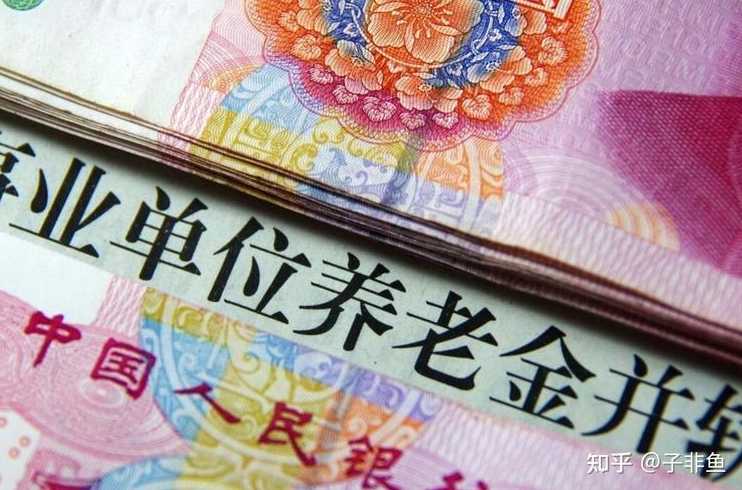 事业单位养老金并轨
中国人民银行
知乎 @子非鱼